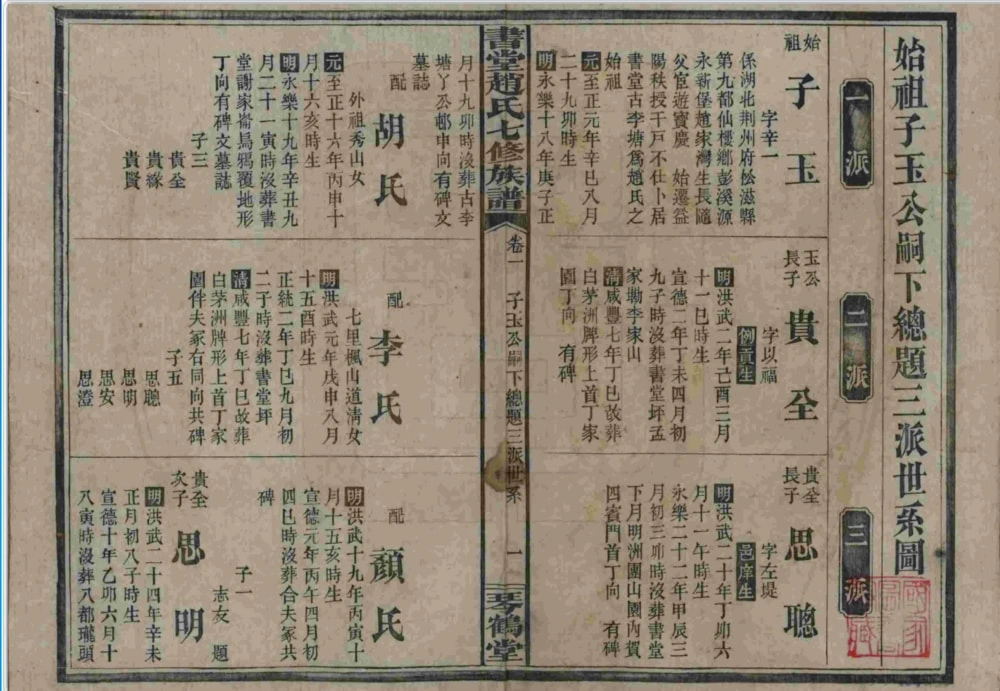 始祖子玉公嗣下總題三派世系圖
一派
二派
三派
始祖
子玉
字辛一
係湖北荆州府松滋縣
第九都仙樓鄉彭溪源
永新堡趙家灣生長隨
父宦遊寶慶 始遷益
陽秩授千戸不仕卜居
書堂古李塘爲趙氏之
始祖
元至正元年辛巳八月
二十九卯時生
明永樂十八年庚子正
月十九卯時沒葬古李
塘丫公邨申向有碑文
墓誌
配
胡氏
外祖秀山女
元至正十六年丙申十
月十六亥時生
明永樂十九年辛丑九
月二十一寅時沒葬書
堂謝家崙烏鴉覆地形
丁向有碑文墓誌
子三
貴全
貴緣
貴賢
玉公長子
貴全
字以福
例貢生
明洪武二年己酉三月
十一巳時生
宣德二年丁未四月初
九子時沒葬書堂坪孟
家坳李家山
清咸豐七年丁巳故葬
白茅洲牌形上首丁家
園丁向 有碑
配
李氏
七里楓山道清女
明洪武元年戊申八月
十五酉時生
正統二年丁巳九月初
二子時沒葬書堂坪
清咸豐七年丁巳故葬
白茅洲牌形上首丁家
園伴夫冢右同向共碑
子五
思聰
思明
思安
思澄
貴全長子
思聰
字左堤
邑庠生
明洪武二十年丁卯六
月十一午時生
永樂二十二年甲辰三
月初三卯時沒葬書堂
下月明洲團山園內賀
四賓門首丁向 有碑
配
顏氏
明洪武十九年丙寅十
月十五亥時生
宣德元年丙午四月初
四巳時沒葬合夫冢共
碑
子一
志友 題
貴全次子
思明
明洪武二十四年辛未
正月初八子時生
宣德十年乙卯六月十
八寅時沒葬八都瓏頭
書堂趙氏七修族譜
卷一
子玉公嗣下總題三派世系
一
琴鶴堂